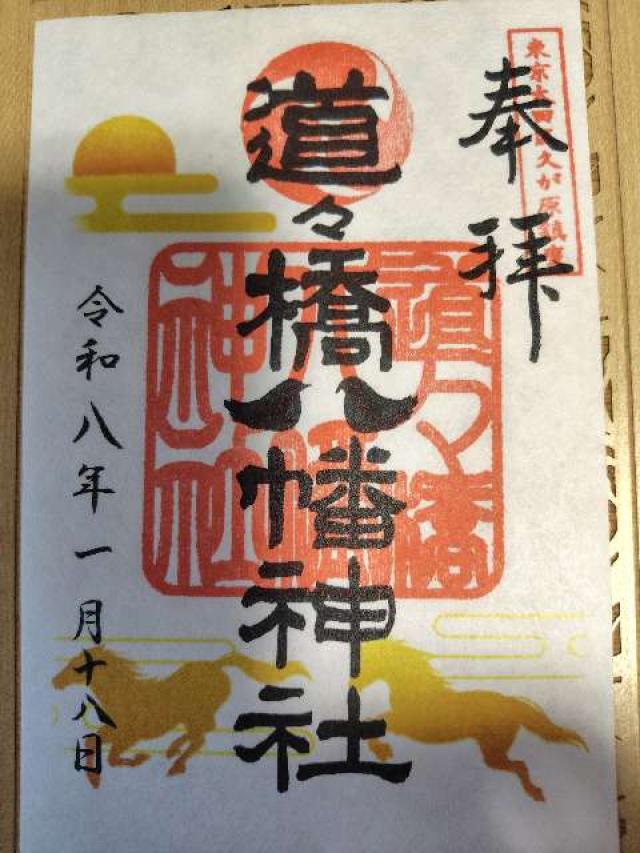 奉拝
東京大田区久が原鎮座
道々橋八幡神社
道々橋八幡神社
令和八年一月十八日